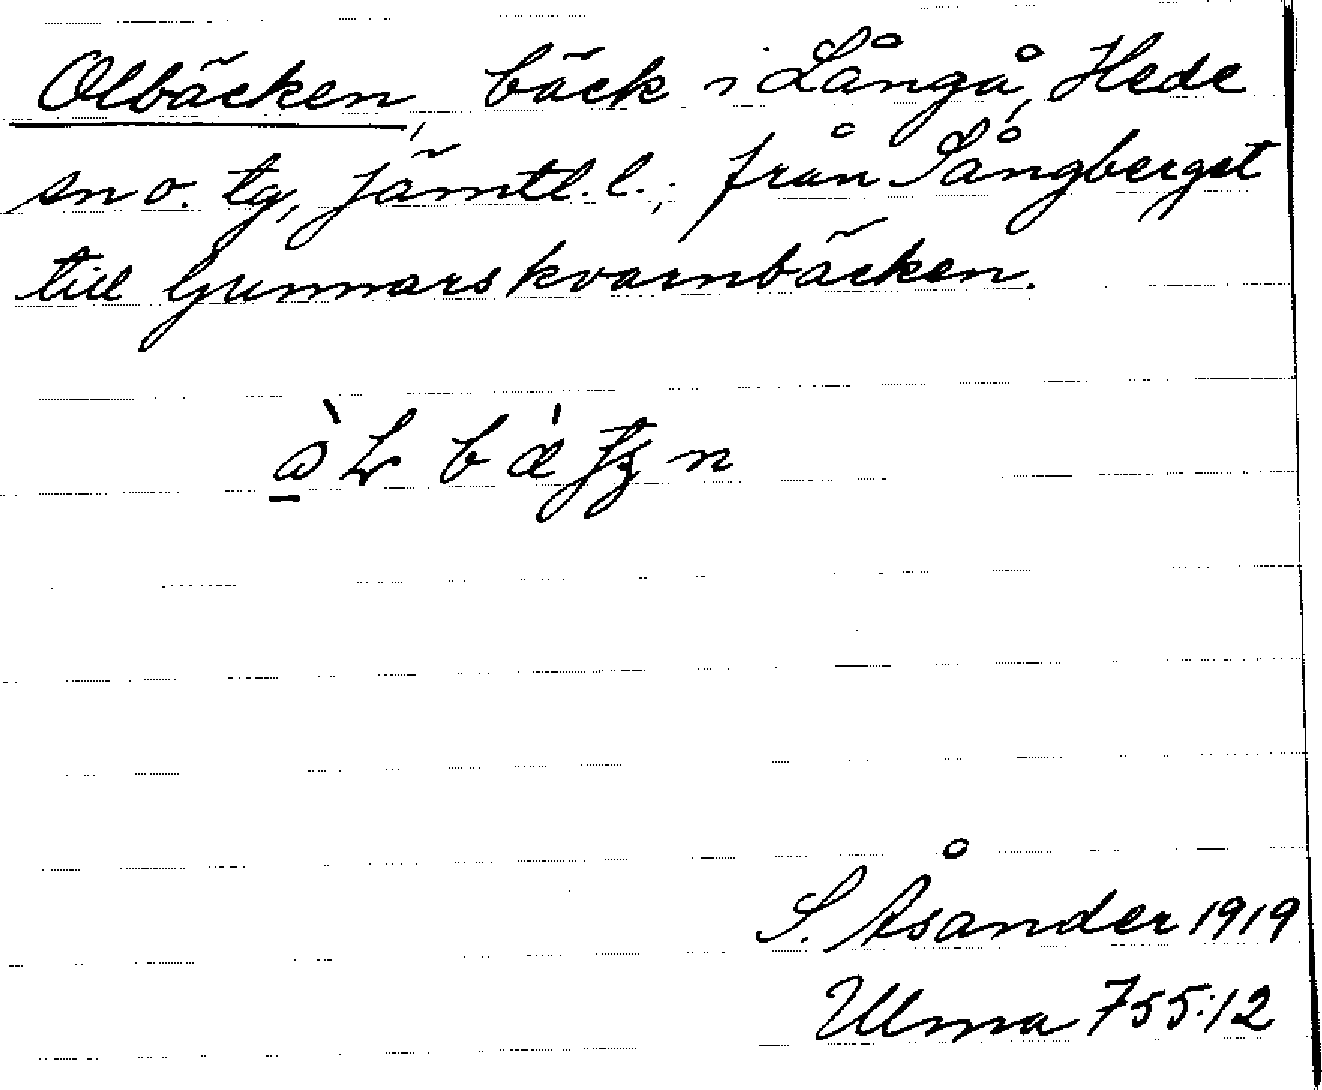 Olbäcken, bäck i Långå, Hede
sn o. tg, Jämtl. l.; från Sångberget
till Gunnarskvarnbäcken.
S. Åsander 1919
Ulma 755:12